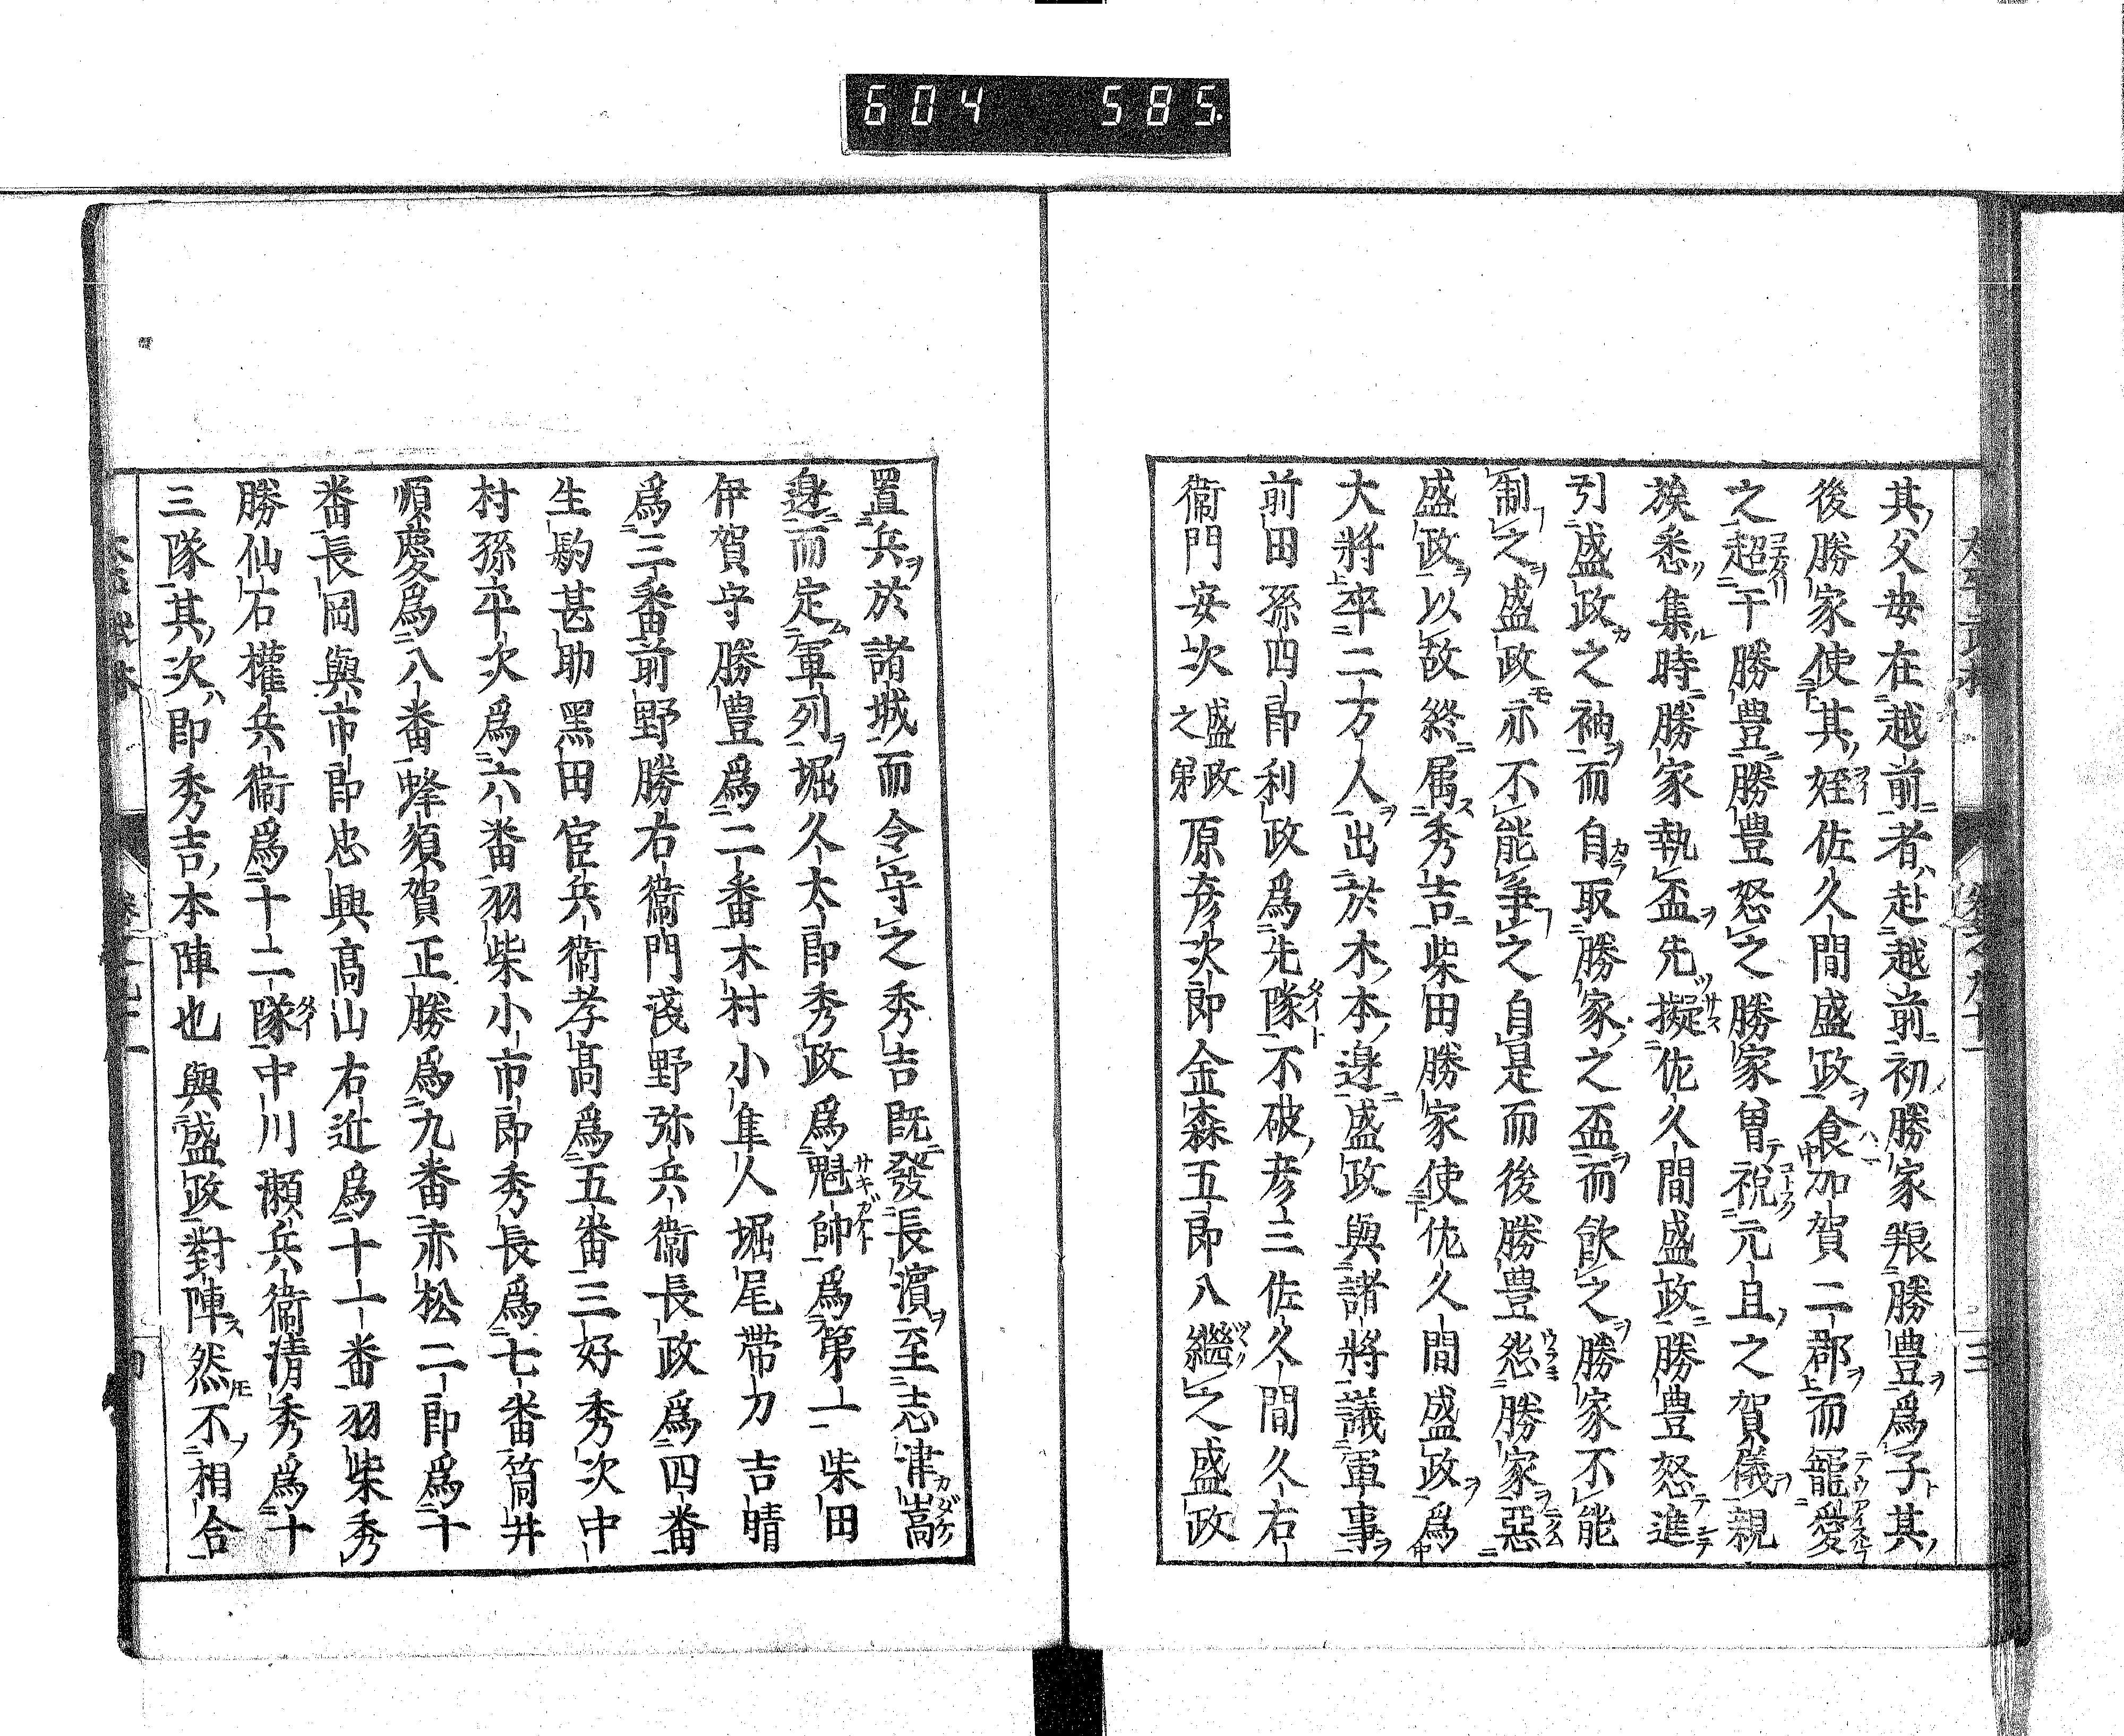 604 585.
其父母在越前者赴越前初勝家猴勝豊爲子其
後勝家使其姪佐久間盛政食加賀二郡而寵愛
之超于勝豊勝豊怒之勝家曽祝元且之賀儀親
族悉集時勝家執盃先擬佐久間盛政勝豊怒進
引盛政之袖而自取勝家之盃而飲之勝家不能
制之盛政亦不能爭之自是而後勝豊怨勝家惡
盛政以故終属秀吉柴田勝家使佐久間盛政爲
大將卒二万人出於木本邊盛政與諸將議軍事
前田孫四郎利政爲先隊不破彦三佐久間久右
衞門安次盛政之弟原彦次郎金森五郎八繼之盛政
置兵於諸城而令守之秀吉既發長濵至志津嵩
邊而定軍列堀久太郎秀政爲魁帥爲第一柴田
伊賀守勝豊爲二番木村小隼人堀尾帶刀吉晴
爲三番前野勝右衞門淺野弥兵衞長政爲四番
生駒甚助黑田官兵衞孝髙爲五番三好秀次中
村孫平次爲六番羽柴小市郎秀長爲七番筒井
順慶爲八番蜂須賀正勝爲九番赤松二郎爲十
番長岡與市郎忠興髙山右近爲十一番羽柴秀
勝仙石權兵衞爲十二隊中川瀬兵衞清秀爲十
三隊其次即秀吉本陣也與盛政對陣然不相合